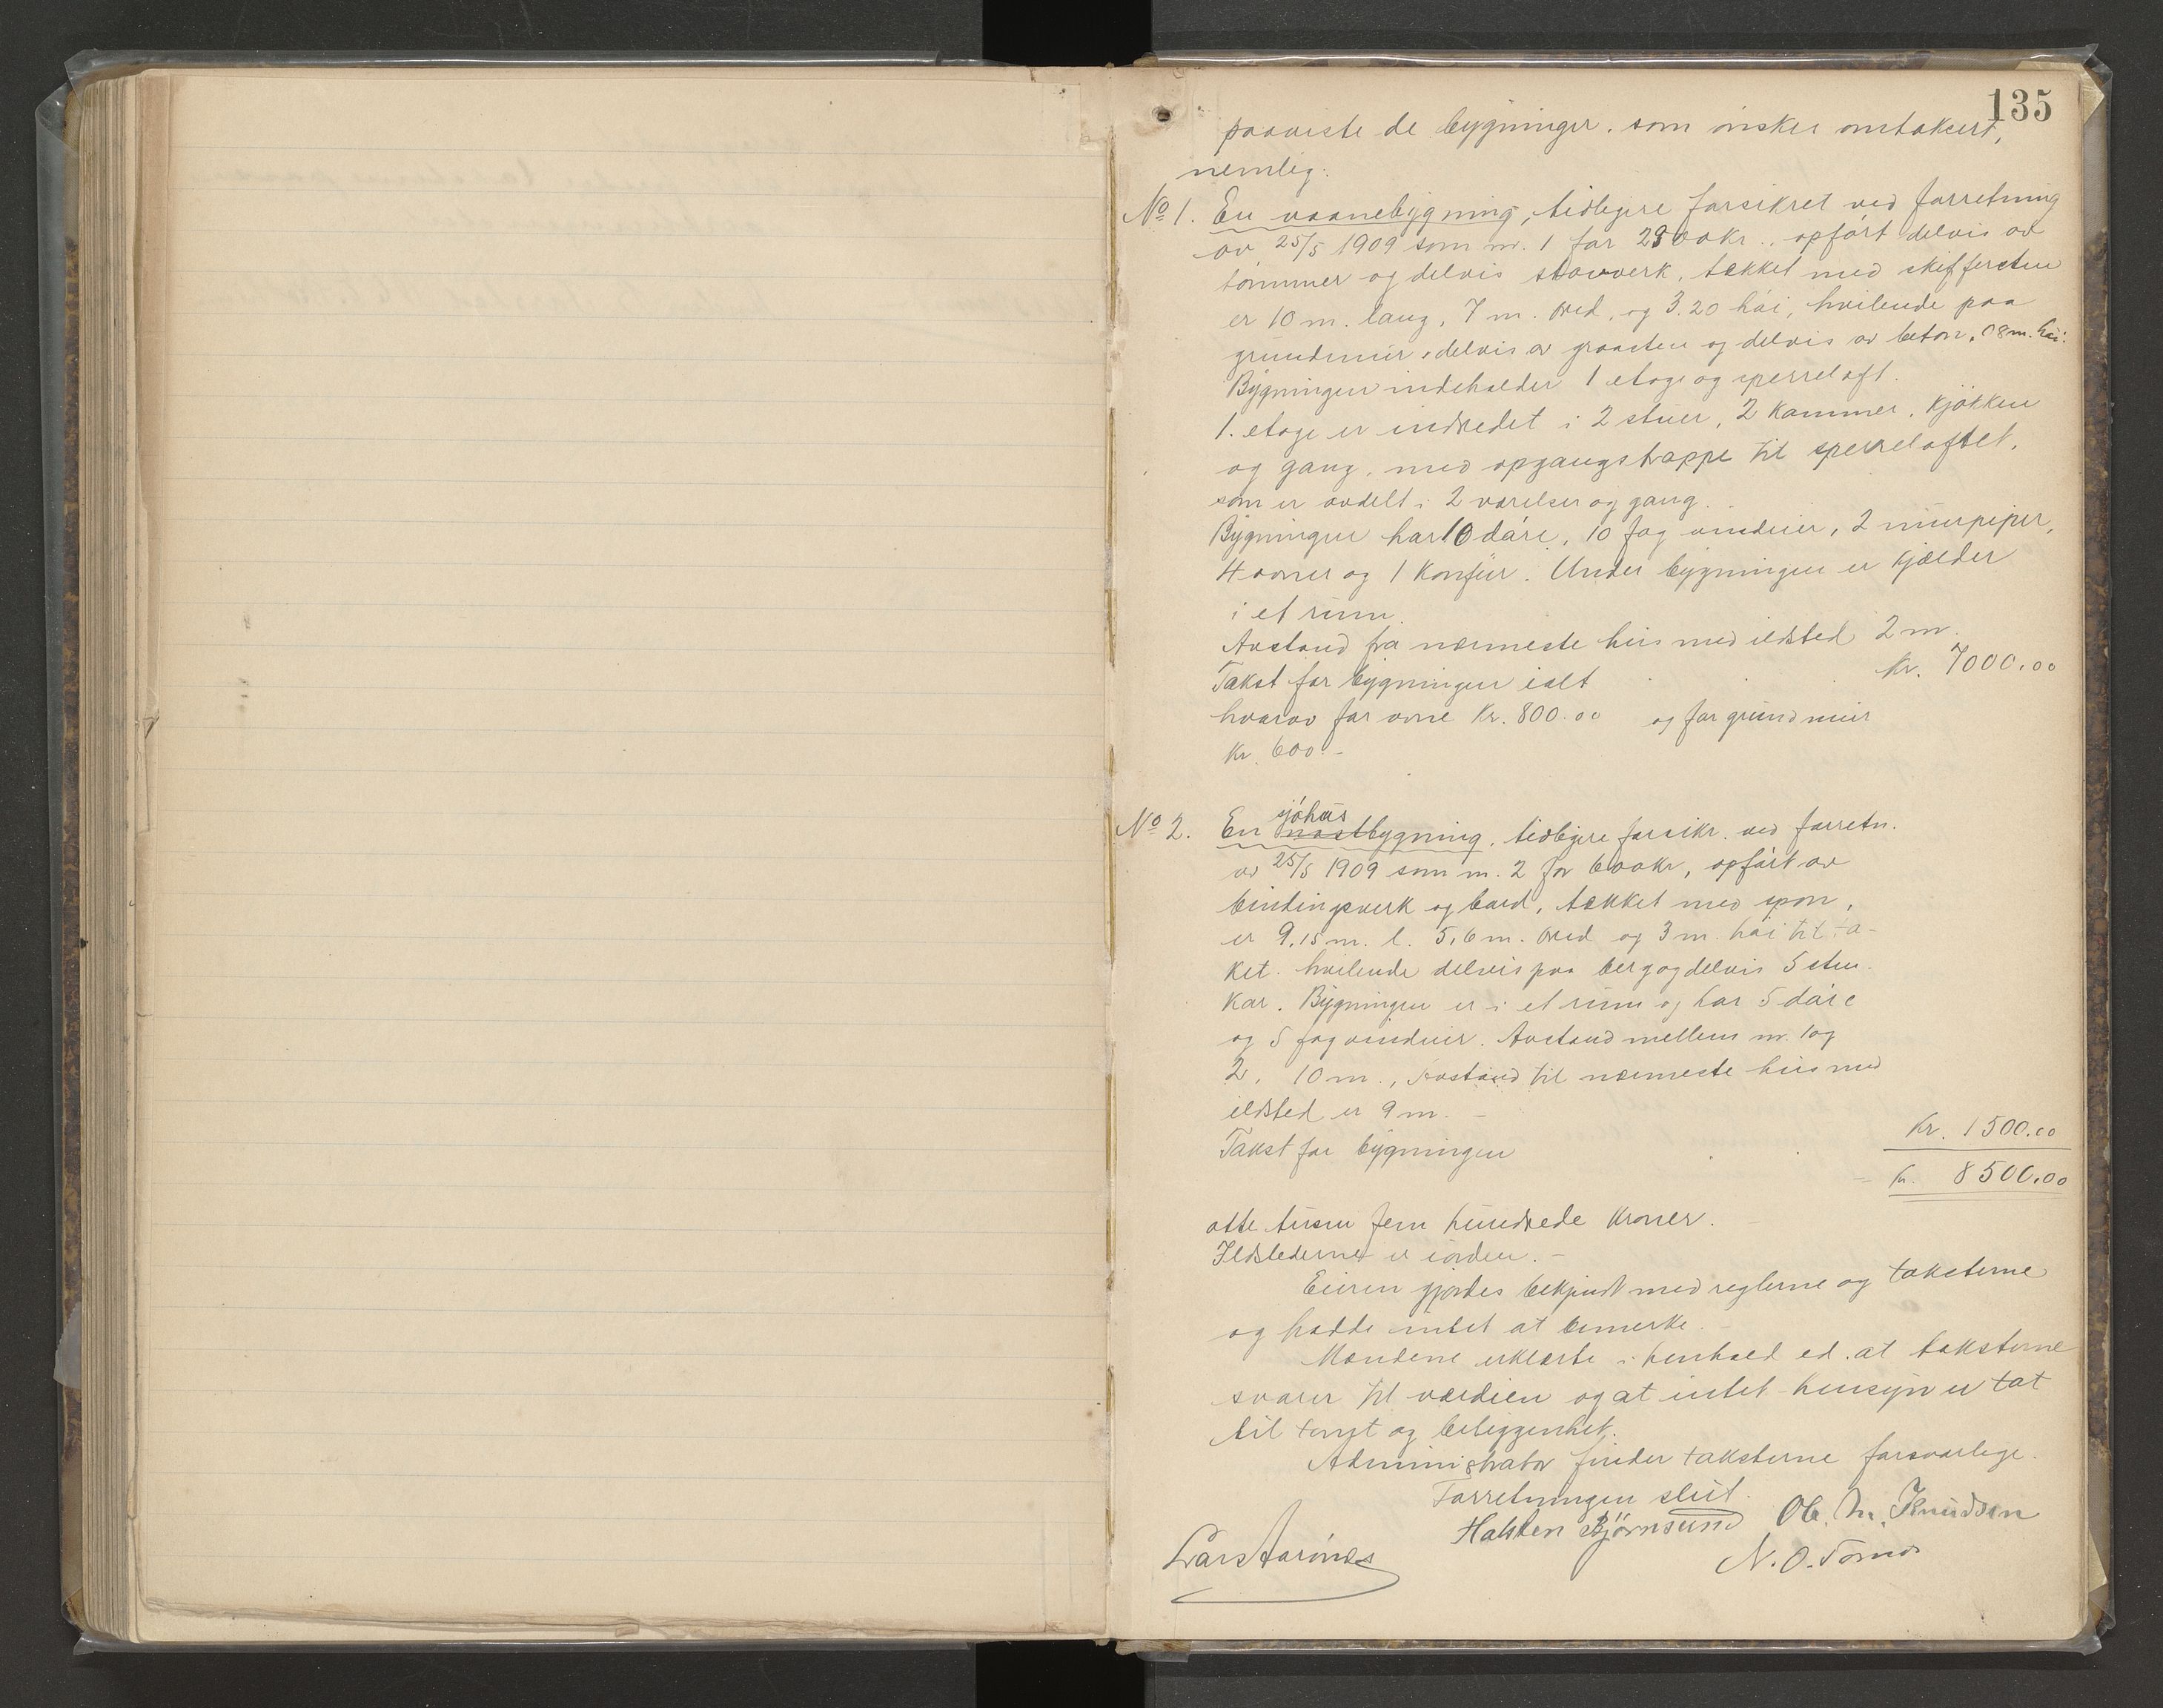 135
paaviste de bygninger, som ønskes omtaksert,
nemlig:
No 1. En vaanebygning, tidligere forsikret ved forretning
av 25/5 1909 som nr. 1 for 2900 kr., opført delvis av
tømmer og delvis stavverk, tækket med skiffersten
er 10 m. lang, 7 m. bred, og 3.20 høi, hvilende paa
grundmur, delvis av graasten og delvis av beton, 0 8 m. høi.
Bygningen indeholder 1 etage og sperreloft.
1. etage er indredet i 2 stuer, 2 kammer, kjøkken
og gang, med opgangstrappe til sperreloftet,
som er avdelt i 2 værelser og gang.
Bygningen har 10 døre, 10 fag vinduer, 2 murpiper,
4 ovner og 1 komfur. Under bygningen er kjælder
i et rum.
Avstand fra nærmeste hus med ildsted 2 m.
Takst for bygningen ialt kr. 7000.00
hvorav for ovne kr. 800.00 og for grundmur
kr. 600.-
No 2. En sjøhus nøstbygning, tidligere forsikr. ved forretn.
av 25/5 1909 som nr. 2 for 600 kr, opført av
bindingsverk og bord, tækket med spon,
er 9,15 m. l. 5,6 m. bred og 3 m. høi til ta-
ket. hvilende delvis paa berg og delvis 5 sten
kar. Bygningen er i et rum og har 5 døre
og 5 fag vinduer. Avstand mellem nr. 1 og
2, 10 m., avstand til nærmeste hus med
ildsted er 9 m. -
Takst for bygningen kr. 1500.00
kr. 8500.00
otte tusen fem hundrede kroner.
Ildstederne er iorden. -
Eieren gjordes bekjendt med reglerne og taksterne
og hadde intet at bemerke.
Mændene erklærte i henhold ed. at taksterne
svarer til værdien og at intet hensyn er tat
til tomt og beliggenhet.
Administrator finder taksterne forsvarlige.
Forretningen slut.
Halsten Bjørnsund Ol. M. Knudsen
Lars Aarønes N. O. Tornes